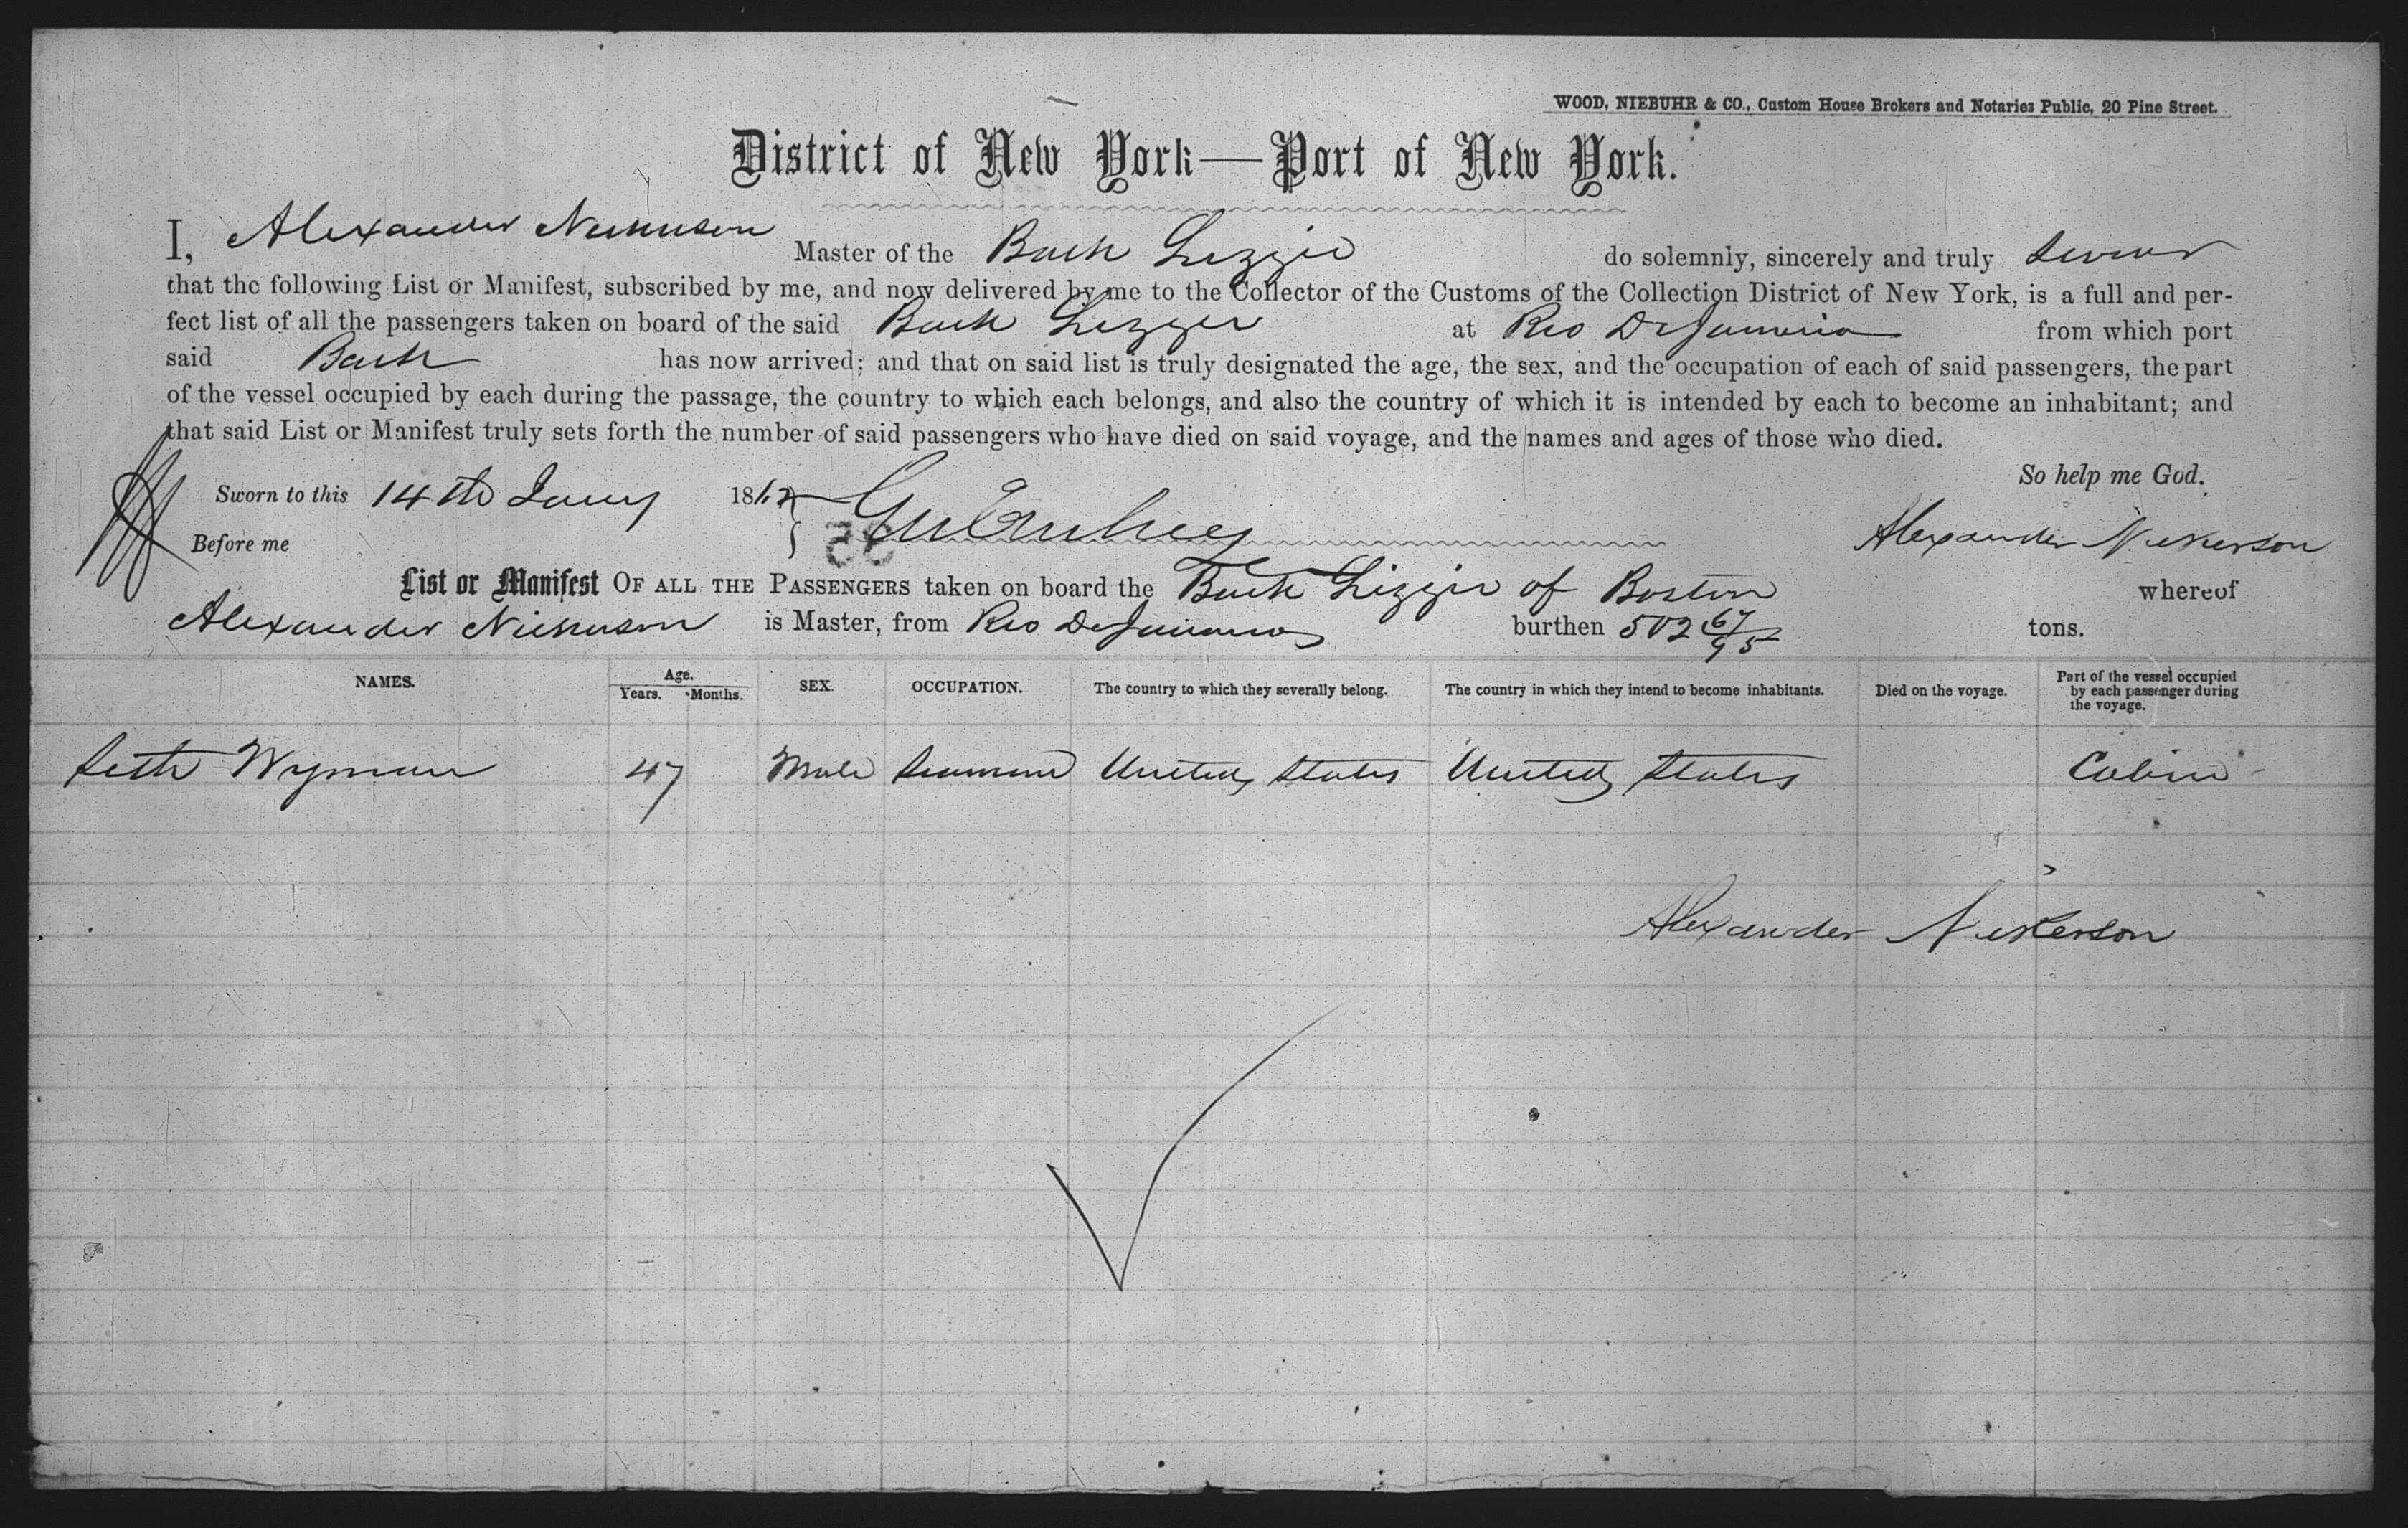 WOOD, NIEBUHR & CO., Custom House Brokers and Notaries Public, 20 Pine Street.
District of New York—Port of New York.
I, Alexander Nickerson Master of the Bark Lizzie do solemnly, sincerely and truly swear
that the following List or Manifest, subscribed by me, and now delivered by me to the Collector of the Customs of the Collection District of New York, is a full and per-
fect list of all the passengers taken on board of the said Bark Lizzie at Rio De Janeiro from which port
said Bark has now arrived; and that on said list is truly designated the age, the sex, and the occupation of each of said passengers, the part
of the vessel occupied by each during the passage, the country to which each belongs, and also the country of which it is intended by each to become an inhabitant; and
that said List or Manifest truly sets forth the number of said passengers who have died on said voyage, and the names and ages of those who died.
So help me God.
Sworn to this 14th Jany 1862
Before me Alexander Nickerson
List or Manifest OF ALL THE PASSENGERS taken on board the Bark Lizzie of Boston whereof
Alexander Nickerson is Master, from Rio De Janeiro burthen 502 67/95 tons.
NAMES. Age. Years. Months. SEX. OCCUPATION. The country to which they severally belong. The country in which they intend to become inhabitants. Died on the voyage. Part of the vessel occupied by each passenger during the voyage.
Seth Wyman 47 Male Seaman United States United States Cabin
Alexander Nickerson